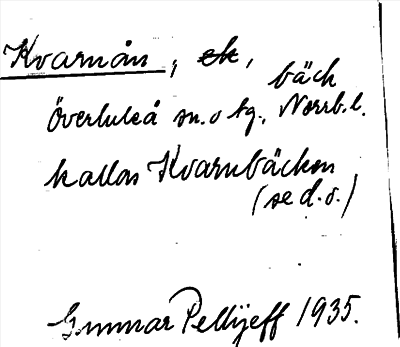 Kvarnån, ek,
bäck
Överluleå sn. o tg., Norrb. l.
kallas Kvarnbäcken
(se d. o.)
Gunnar Pellijeff 1935.